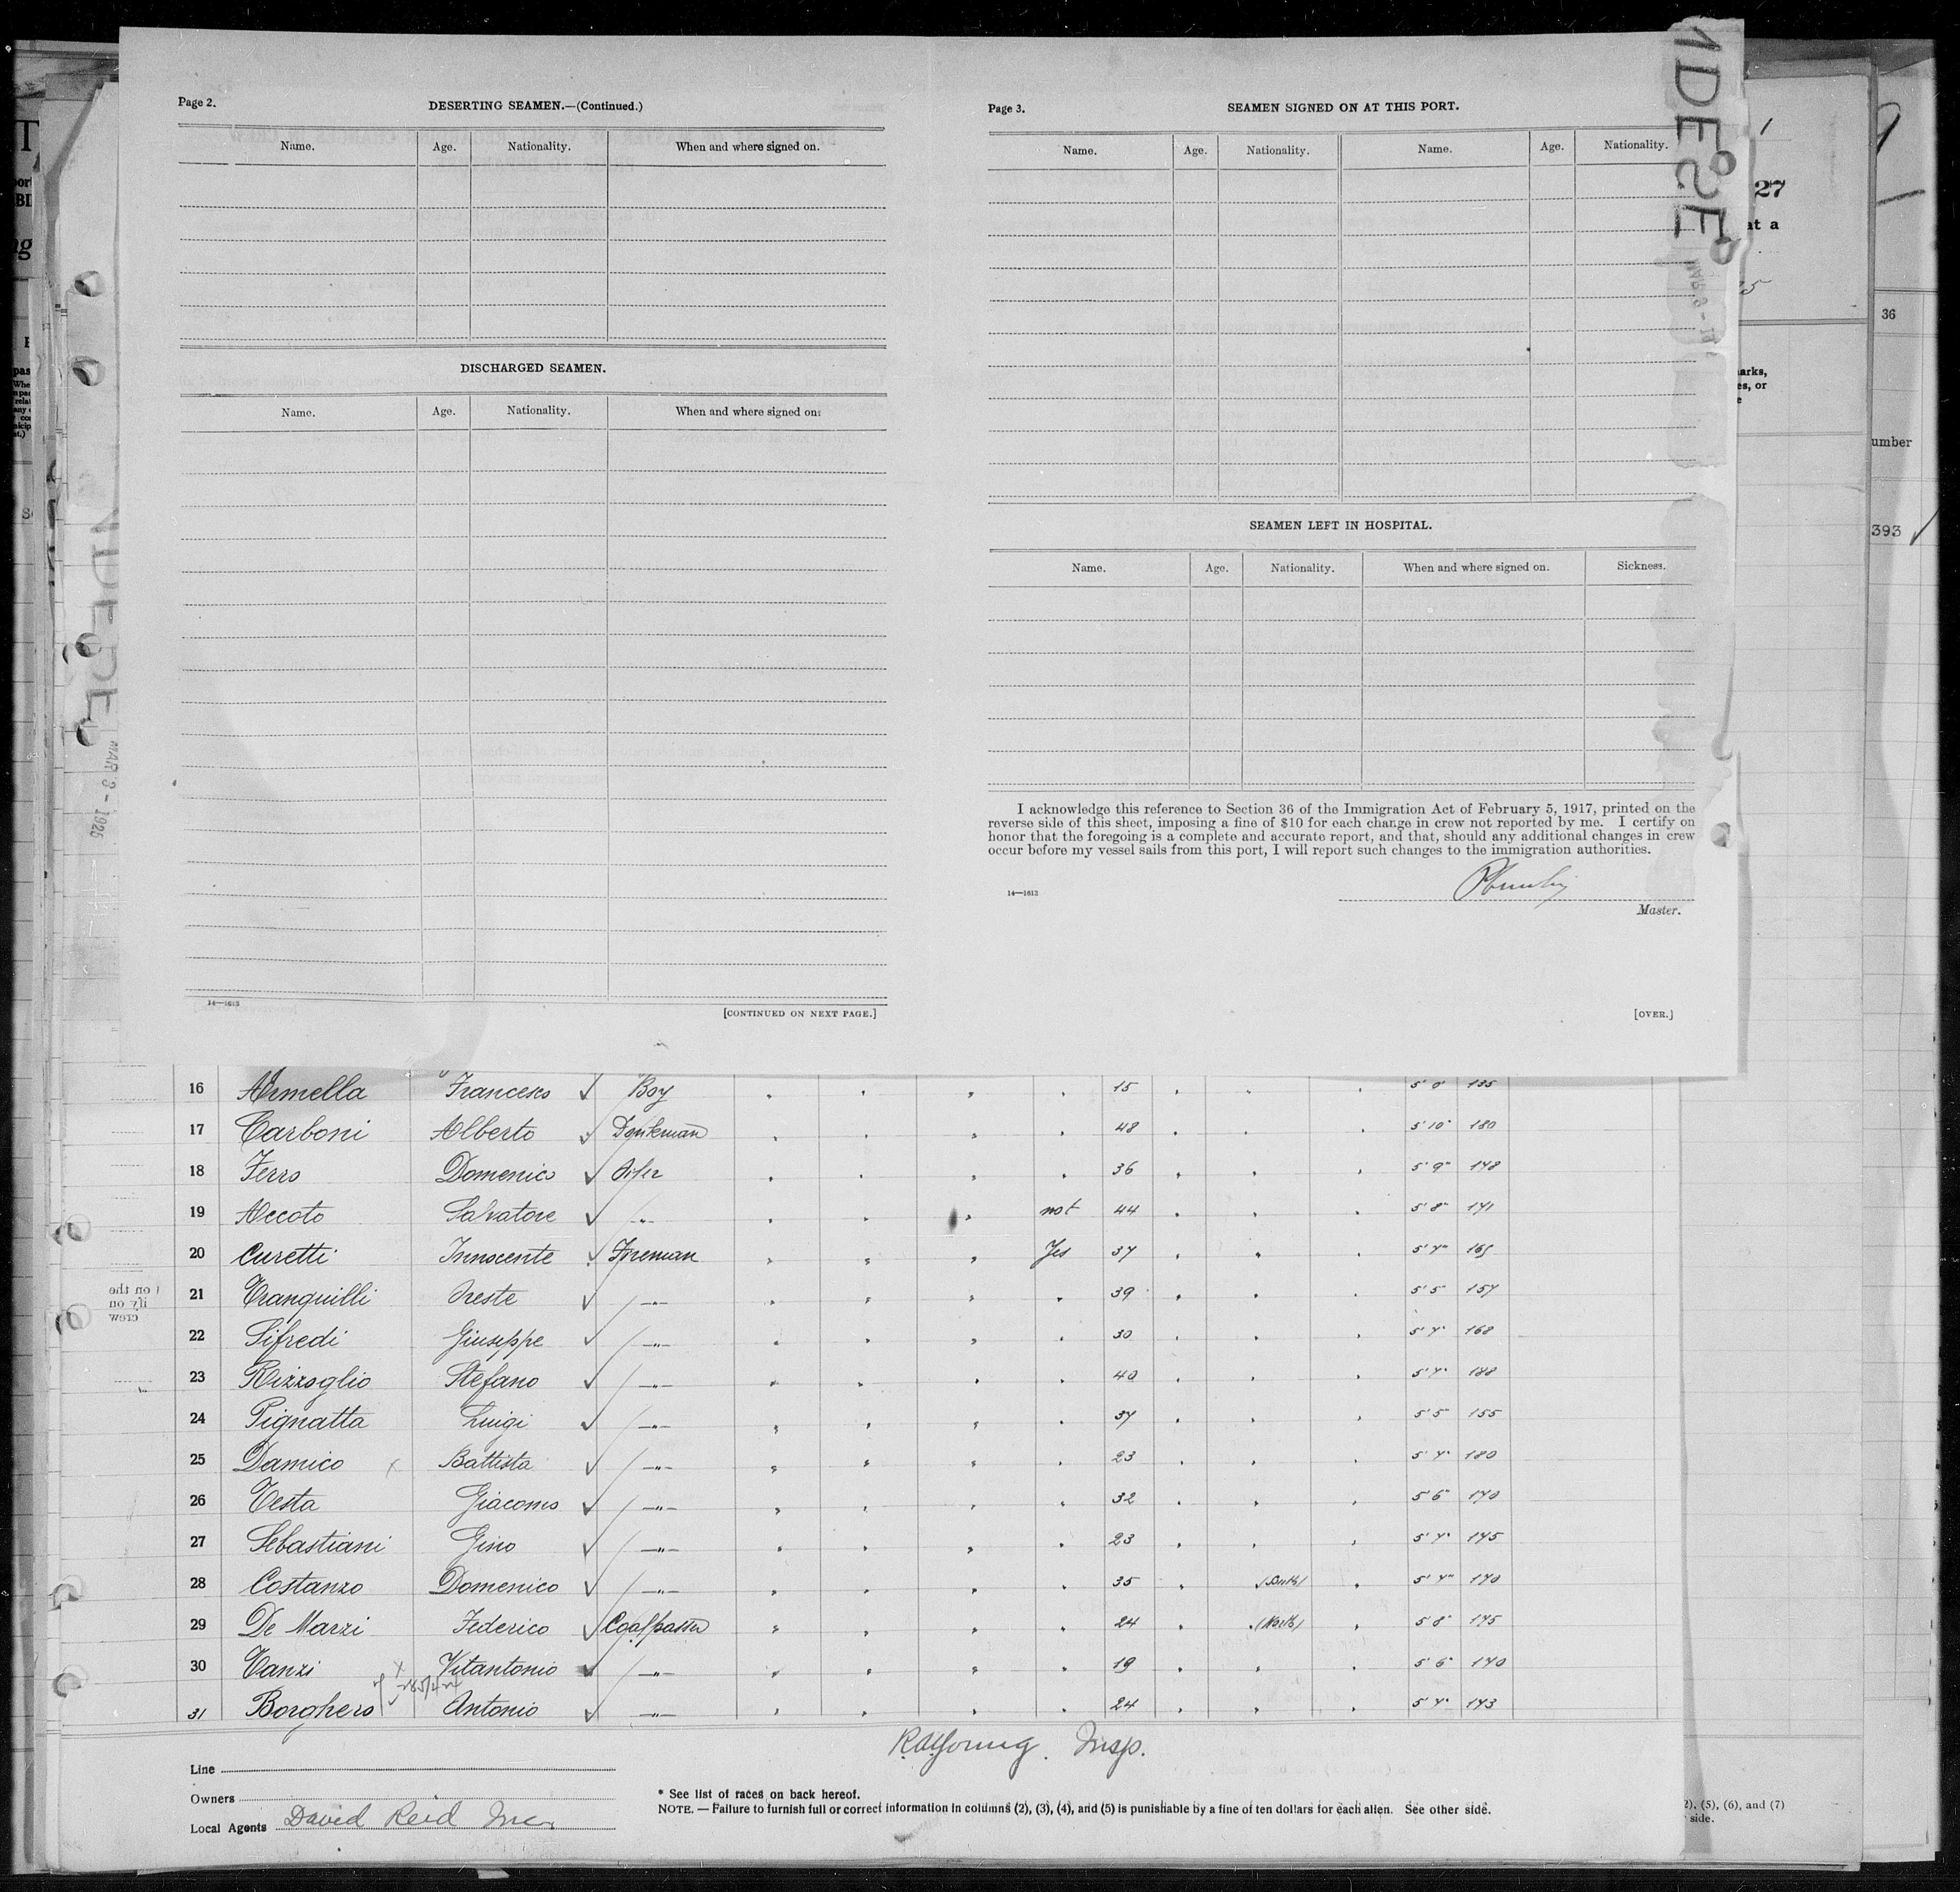 Page 2.
DESERTING SEAMEN.—(Continued.)
Name. Age. Nationality. When and where signed on.
DISCHARGED SEAMEN.
Name. Age. Nationality. When and where signed on.
14—1613
[CONTINUED ON NEXT PAGE.]
Page 3.
SEAMEN SIGNED ON AT THIS PORT.
Name. Age. Nationality. Name. Age. Nationality.
SEAMEN LEFT IN HOSPITAL.
Name. Age. Nationality. When and where signed on. Sickness.
I acknowledge this reference to Section 36 of the Immigration Act of February 5, 1917, printed on the
reverse side of this sheet, imposing a fine of $10 for each change in crew not reported by me. I certify on
honor that the foregoing is a complete and accurate report, and that, should any additional changes in crew
occur before my vessel sails from this port, I will report such changes to the immigration authorities.
14—1613
Master.
[OVER.]
27
at a
36
arks,
es, or
umber
393
MAR 3 - 1925
16 Armella Francesco Boy 15 5' 0" 135
17 Carboni Alberto Donkeman 48 5' 10" 180
18 Ferro Domenico Oiler 36 5' 9" 148
19 Accoto Salvatore " not 44 5' 8" 171
20 Curetti Innocente Fireman Yes 37 5' 7" 165
21 Tranquilli Oreste " 39 5' 5" 157
22 Sifredi Giuseppe " 30 5' 7" 168
23 Rizzoglio Stefano " 40 5' 7" 188
24 Pignatta Luigi " 37 5' 5" 155
25 Damico x Battista " 23 5' 7" 180
26 Testa Giacomo " 32 5' 6" 170
27 Sebastiani Gino " 23 5' 7" 145
28 Costanzo Domenico " 35 (South) 5' 7" 170
29 De Marzi Federico Coalpasser 24 (North) 5' 8" 175
30 Tanzi x Vitantonio " 19 5' 6" 140
31 Borghero Antonio " 24 5' 7" 143
R.A. Young. Insp.
Line
Owners
Local Agents David Reid Inc.
* See list of races on back hereof.
NOTE. — Failure to furnish full or correct information in columns (2), (3), (4), and (5) is punishable by a fine of ten dollars for each alien. See other side.
2), (5), (6), and (7)
side.